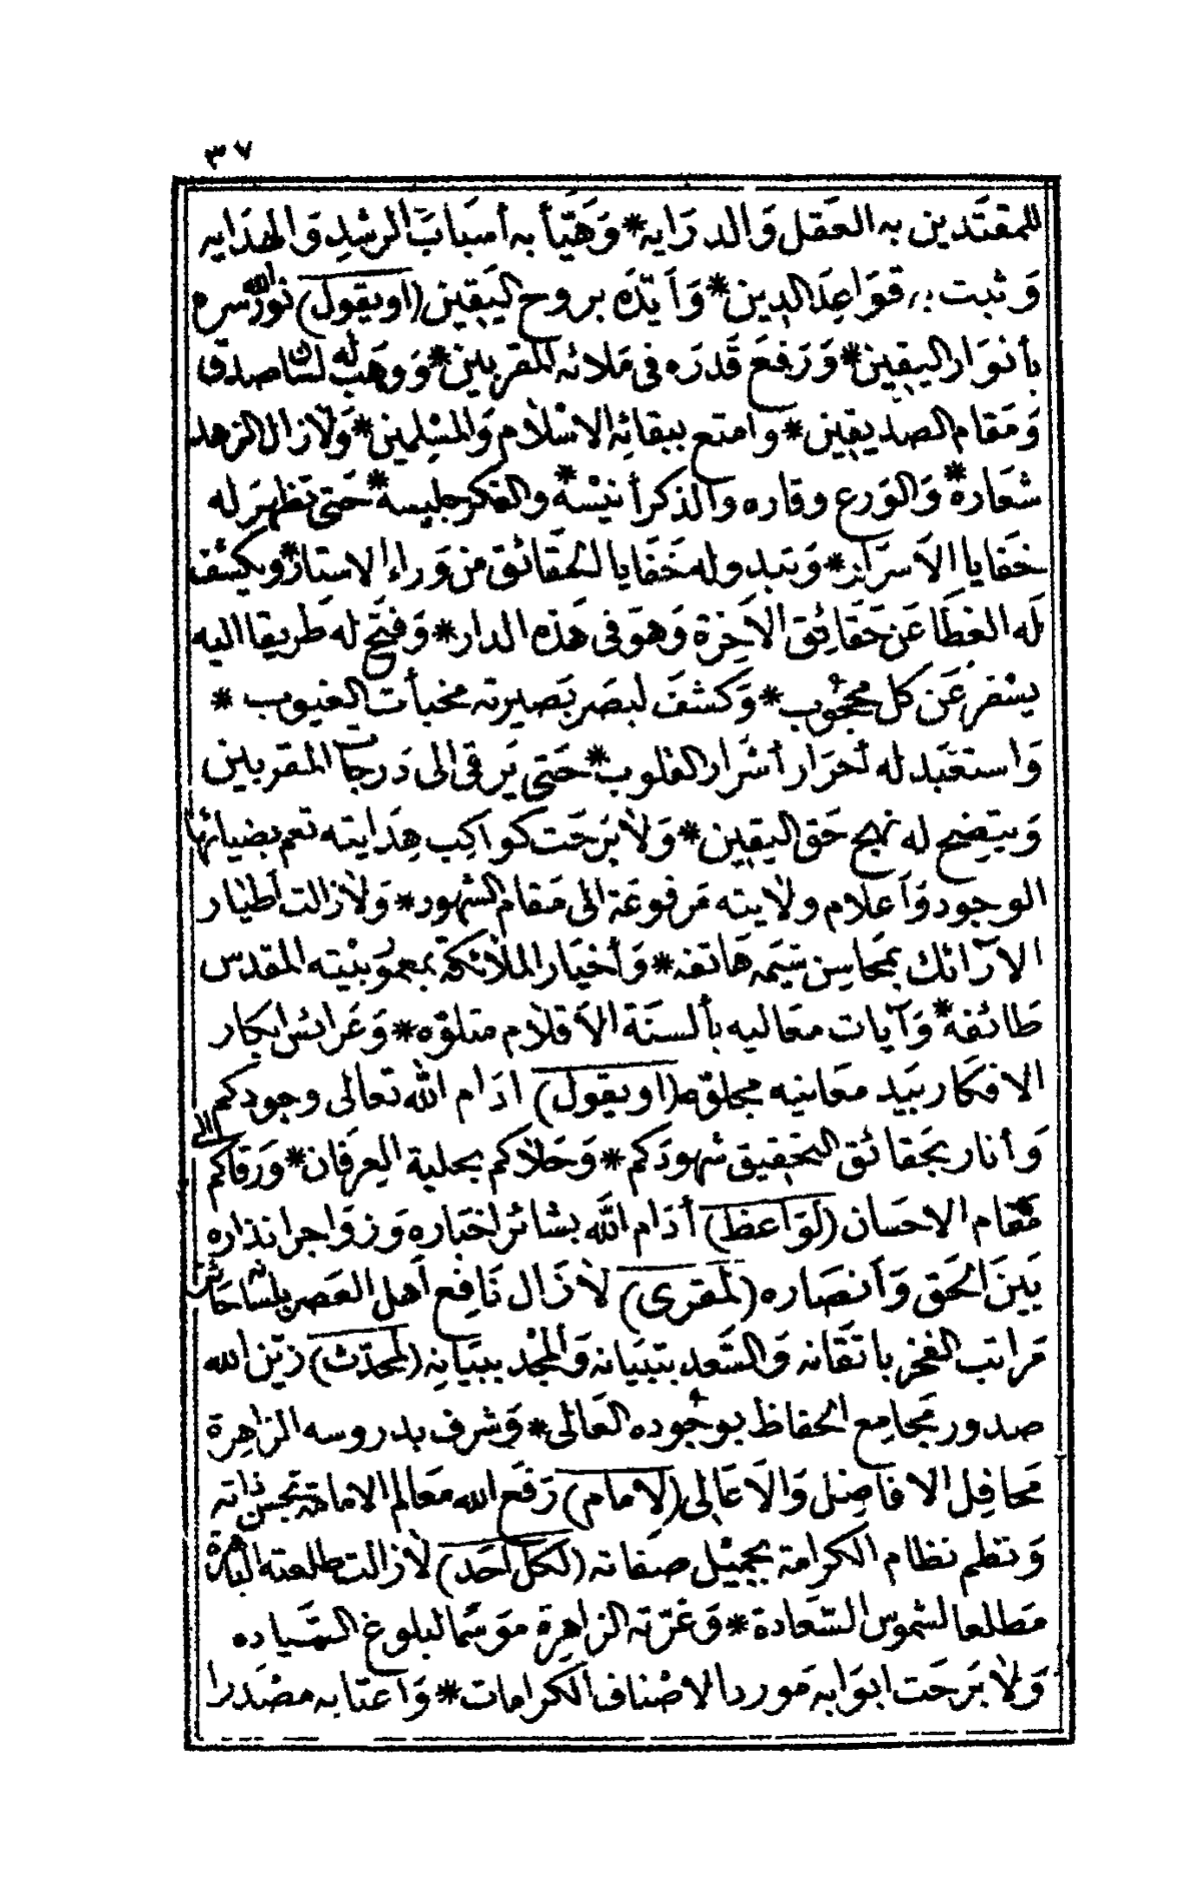 ٣٧
للمقتدين به العقل وَالدرَايه * وَهَيّأ به أسبَابَ الرشدِ وَالهدَايه
وَثبت به قوَاعِدَ الدين * وَأيّدَه بروح اليَقين (اويقول) نوّرالله سره
بأنوَار اليقِين * وَرَفعَ قَدرَه فى مَلائه المقربين * وَوَهَب له لسان صدق
وَمَقام الصديقين * وامتع ببقائِه الاسْلام وَالمسْلِمين * وَلازال الزهد
شعَاره * وَالوَرع وقاره والذكر أنيْسه * والفكر جليسه * حَتى تظهرَ له
خفايا الاَسرَار * وَتبدو له خَفَايا الحَقائق من وَراء الاستار * ويكشف
لَه الغطَا عَن حَقَائِق الآخِرة وَهوَ فى هَذه الدار * وَفتَح له طَريقا اليه
يسْفر عَن كل محجُوب * وَكشفَ لبصَر بَصيرته مخبأت الغيوب *
وَاستعبَد له أحرَار أسْرَار القلوب * حَتى يَرقى الى دَرجات المقربين
وَيتضِح له نهج حَق اليقين * وَلا بَرحَت كواكِب هِدَايته تعم بضيائها
الوجود وَأعلام ولايته مَرفوعَة الى مَقام الشهود * وَلازالت أطيَار
الاَرَائك بمَحاسِن شيَمه هَاتفه * وَأخيَار الملائكة بمعمور بيْته المقدس
طَائفه * وَآيات معَاليه بألسنَة الاَقلام متلوّه * وَعَرائس ابكار
الافكار بيَد معَانيه مجلوّه (اويقول) ادَام الله تعالى وجودكم
وَأنار بحَقائق التحقيق شهودَكم * وَحَلاكم بحلية العِرفَان * وَرَقاكم الى
مَقام الاحسَان (لوَاعظ) أدَام الله بشائر اخباره وَزوَاجر انذاره
بَينَ الحَق وَأنصَاره (لمقرى) لازَال نَافِع أهل العَصر بلسانه حَائز
مَراتب الفخر باتقَانه وَالسّعد بتبيَانه وَالمجْد ببيَانِه (لمحدّث) زيّن الله
صدور مجَامِع الحفاظ بوجُوده العَالى * وَشرف بدروسه الزاهِرة
مَحافِل الافاضِل وَالاَعَالِى (لامام) رَفَع الله مَعَالم الامامة بحسن ذاته
وَنظم نظام الكرامة بجميْل صفاته (لكل أحَد) لازالت طلعته الباهرة
مَطلعا لشموس السّعَادة * وَغرّته الزاهِرة موَسَما لبلوغ السّيَاده
وَلا بَرحَت ابوَابه مَوردا لاصْناف الكرامات * وَأعتابه مصْدَرا